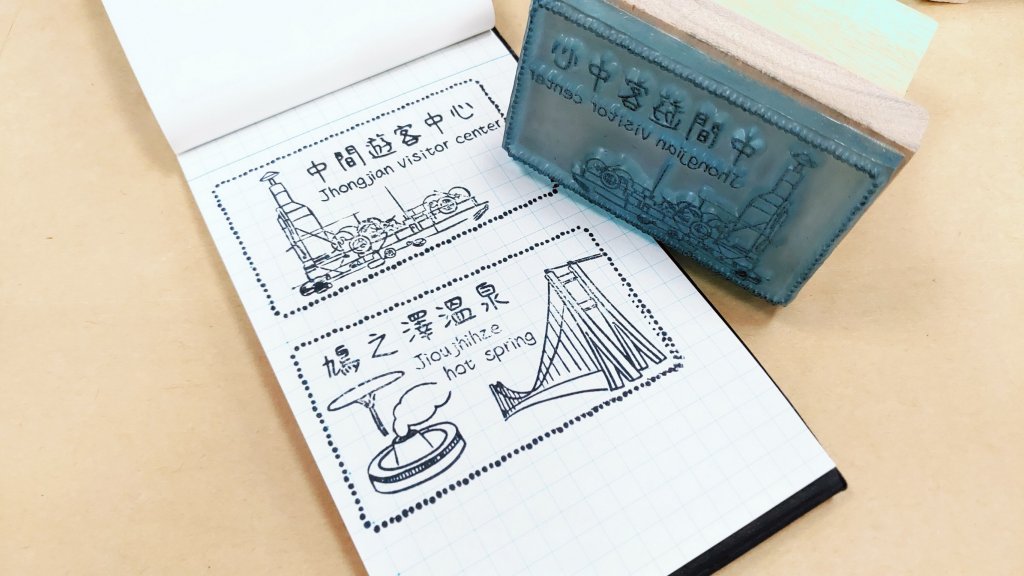 中間遊客中心
Jhongjian visitor center
鳩之澤溫泉
Jioujhihze
hot spring
中間遊客中心
Jhongjian visitor center